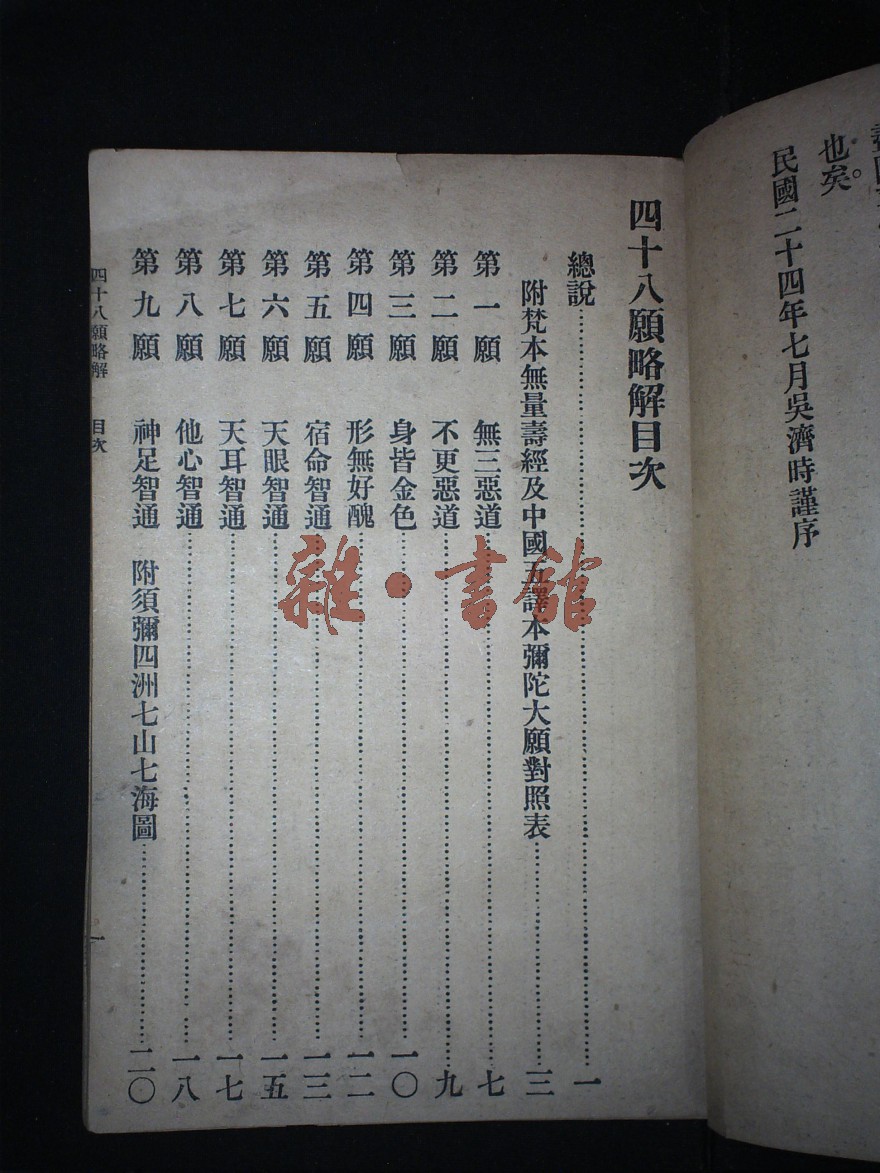 也矣。
民國二十四年七月吳濟時謹序
四十八願略解目次
總說……一
附梵本無量壽經及中國五譯本彌陀大願對照表……三
第一願 無三惡道……七
第二願 不更惡道……九
第三願 身皆金色……一〇
第四願 形無好醜……一二
第五願 宿命智通……一三
第六願 天眼智通……一五
第七願 天耳智通……一七
第八願 他心智通……一八
第九願 神足智通 附須彌四洲七山七海圖……二〇
四十八願略解 目次 一
雜·書館